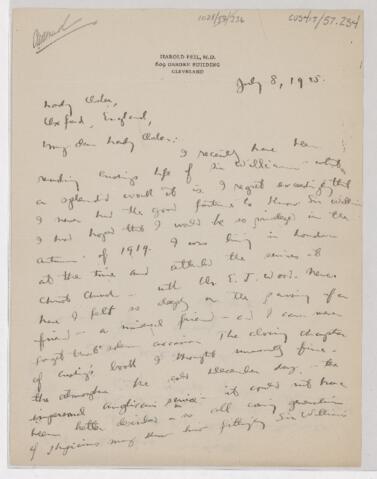 HAROLD FEIL, M.D.
809 OSBORN BUILDING
CLEVELAND
July 8, 1925.
Lady Osler,
Oxford, England,
My dear Lady Osler:
I recently have been
reading Cushing's Life of Sir William – what
a splendid work it is. I regret exceedingly that
I never had the good fortune to know Sir William
I had hoped that I would be so privileged in the
autumn of 1919. I was living in London
at the time and attended the services at
Christ Church – with Dr. E. J. Wood. Never
have I felt so deeply on the passing of a
friend – a friend – and I can never
forget that solemn occasion. The closing chapter
of Cushing's book I thought unusually fine –
the atmosphere, the cold December day, – the
impersonal Anglican service – it could not have
been better described – so all coming generations
of physicians may know how fittingly Sir William's